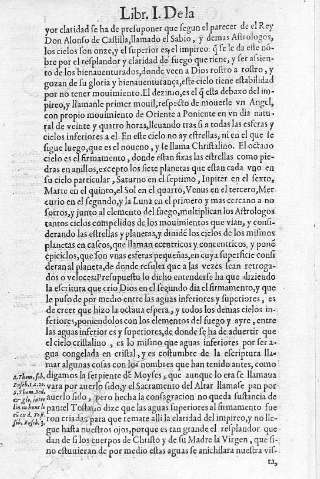 Libr. I. De la
yor claridad se ha de presuponer que segun el parecer de el Rey
Don Alonso de Castilla, llamado el Sabio, y demas Astrologos,
los cielos son onze, y el superior es, el impireo q̃ se le da este nō-
bre por el resplandor y claridad de fuego que tiene, y ser asien-
to de los bienauenturados, donde veen a Dios rostro a rostro, y
gozan de su gloria y bienauenturãça, este cielo tiene estabilidad
por no tener mouimiento. El dezimo, es el q̃ esta debaxo del im-
pireo, y llamanle primer mouil, respecto de mouerle vn Angel,
con propio mouimiento de Oriente a Poniente en vn dia natu-
ral de veinte y quatro horas, lleuando tras si a todas las esferas y
cielos inferiores a el. En este cielo no ay estrellas, ni en el que se
sigue luego, que es el noueno, y le llama Christalino. El octauo
cielo es el firmamento, donde estan fixas las estrellas como pie-
dras en anillos, excepto los siete planetas que estan cada vno en
su cielo particular, Saturno en el septimo, Iupiter en el sexto,
Marte en el quinto, el Sol en el quarto, Venus en el tercero, Mer-
curio en el segundo, y la Luna en el primero y mas cercano a no-
sotros, y junto al elemento del fuego, multiplican los Astrologos
tantos cielos compelidos de los mouimientos que vian, y consi-
derando las estrellas y planetas, y diuidē los cielos de los mismos
planetas en cascos, que llaman eccentricos y concentricos, y ponē
epiciclos, que son vnas esferas pequeñas, en cuya superficie consi
deran al planeta, de donde resulta que a las vezes sean retroga-
dos o veloces: Presupuesto lo dicho entenderse ha que diziendo
la escritura que crio Dios en el segundo dia el firmamento, y que
le puso de por medio entre las aguas inferiores y superiores, es
de creer que hizo la octaua esfera, y todos los demas cielos in-
feriores, poniendolos con los elementos del fuego y ayre, entre
las aguas inferiores y superiores, de donde se ha de aduertir que
el cielo cristalino, es lo mismo que aguas inferiores por ser a-
gua congelada en cristal, y es costumbre de la escritura lla-
mar algunas cosas con los nombres que han tenido antes, como
digamos la serpiente de Moyses, que aunque lo era se llamaua
vara por auerlo sido, y el Sacramento del Altar llamase pan por
auerlo sido, pero hecha la consagracion no queda sustancia de
pan: el Tostado dize que las aguas superiores al firmamento fue
ron criadas para que temple alli la claridad del impireo, y no lle-
gue hasta nuestros ojos, porque es tan grande el resplandor que
dan de si los cuerpos de Christo y de su Madre la Virgen, que si
no estuuieran de por medio estas aguas se anichilara nuestra vis-
ta,